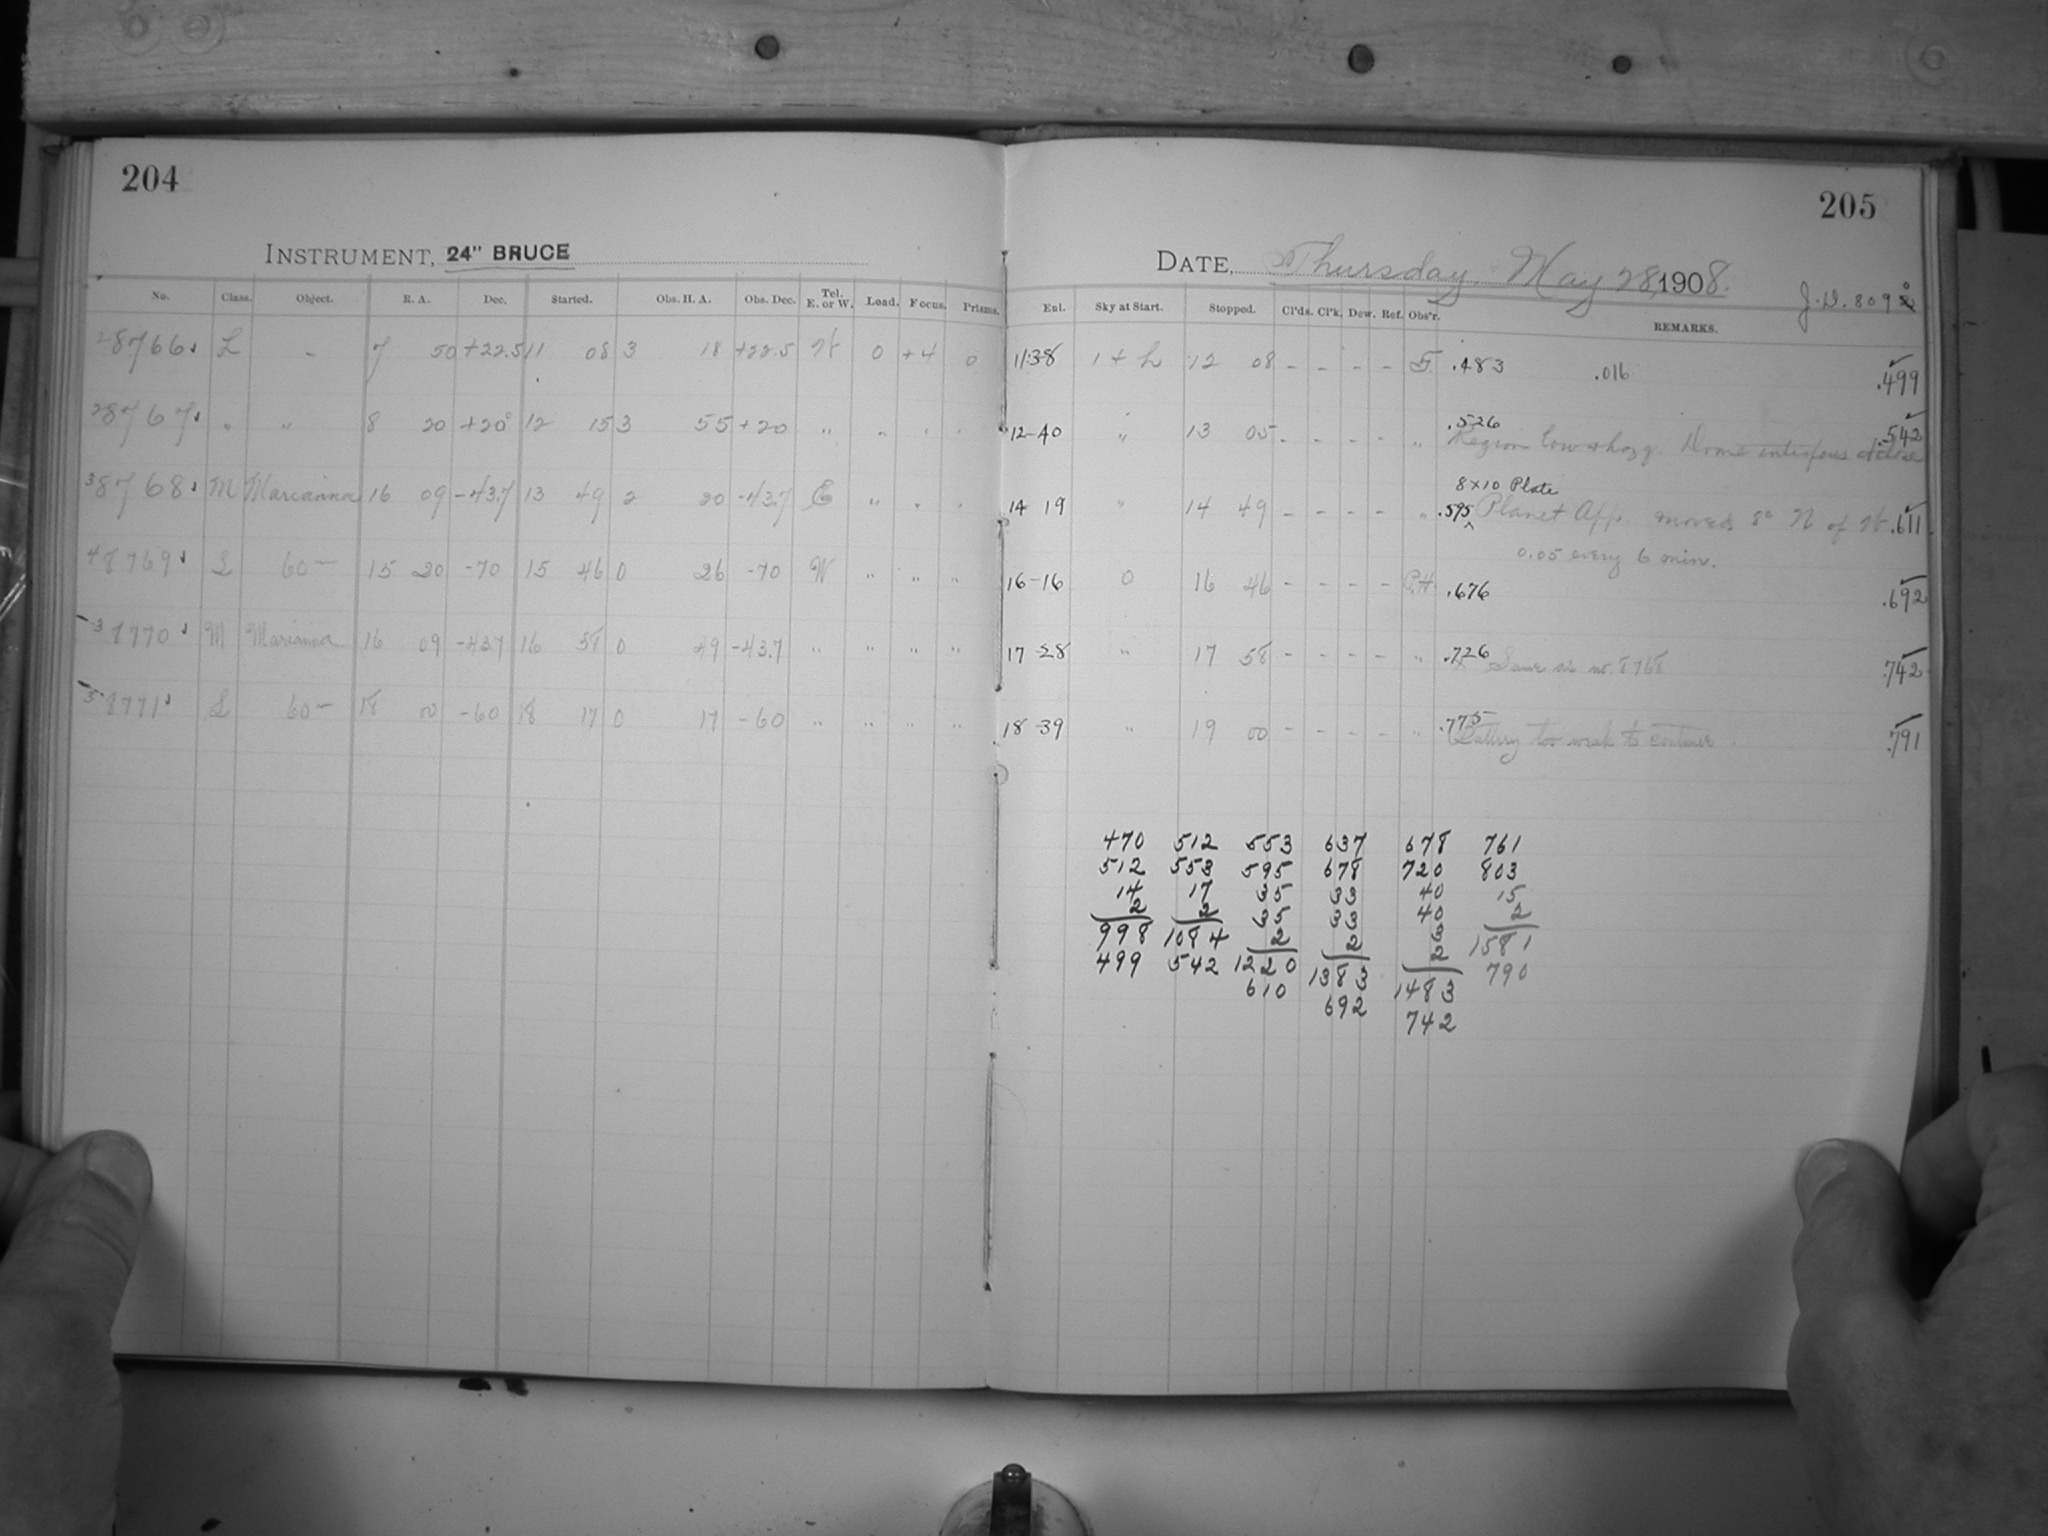 204
205
INSTRUMENT, 24" BRUCE
DATE, Thursday May 28, 1908.
J.D. 809
No. Class. Object. R. A. Dec. Started. Obs. H. A. Obs. Dec. Tel. E. or W. Load. Focus. Prisms. Enl. Sky at Start. Stopped. Cl'ds. Cl'k. Dew. Ref. Obs'r. REMARKS.
8766 L - 7 50 +22.5 11 08 3 18 +22.5 W 0 +4 0 11:38 1 + h 12 08 - - - - .483 .016 .499
8767 " " 8 20 +20° 12 15 3 55 +20 " " " " 12-40 " 13 05 - - - - " .526 .542
Region low & hazy. Dome interferes at close
8768 M Marianna 16 09 -43.7 13 49 2 20 -43.7 E " " " 14 19 " 14 49 - - - - " .595 8x10 Plate .611
Planet App. moved 8° N of W
0.05 every 6 min.
8769 L 60- 15 20 -70 15 46 0 26 -70 W " " " 16-16 0 16 46 - - - - P.H. .676 .692
8770 M Marianna 16 09 -43.7 16 58 0 49 -43.7 " " " " 17 28 " 17 58 - - - - " .726 Same as no. 8768 .742
8771 L 60- 18 00 -60 18 17 0 17 -60 " " " " 18-39 " 19 00 - - - - " .775 Battery too weak to continue. .791
470 512 553 637 678 761
512 553 595 678 720 803
14 17 35 33 40 15
2 2 35 33 40 2
998 1084 2 2 3 1581
499 542 1220 1383 2 790
610 692 1483
742